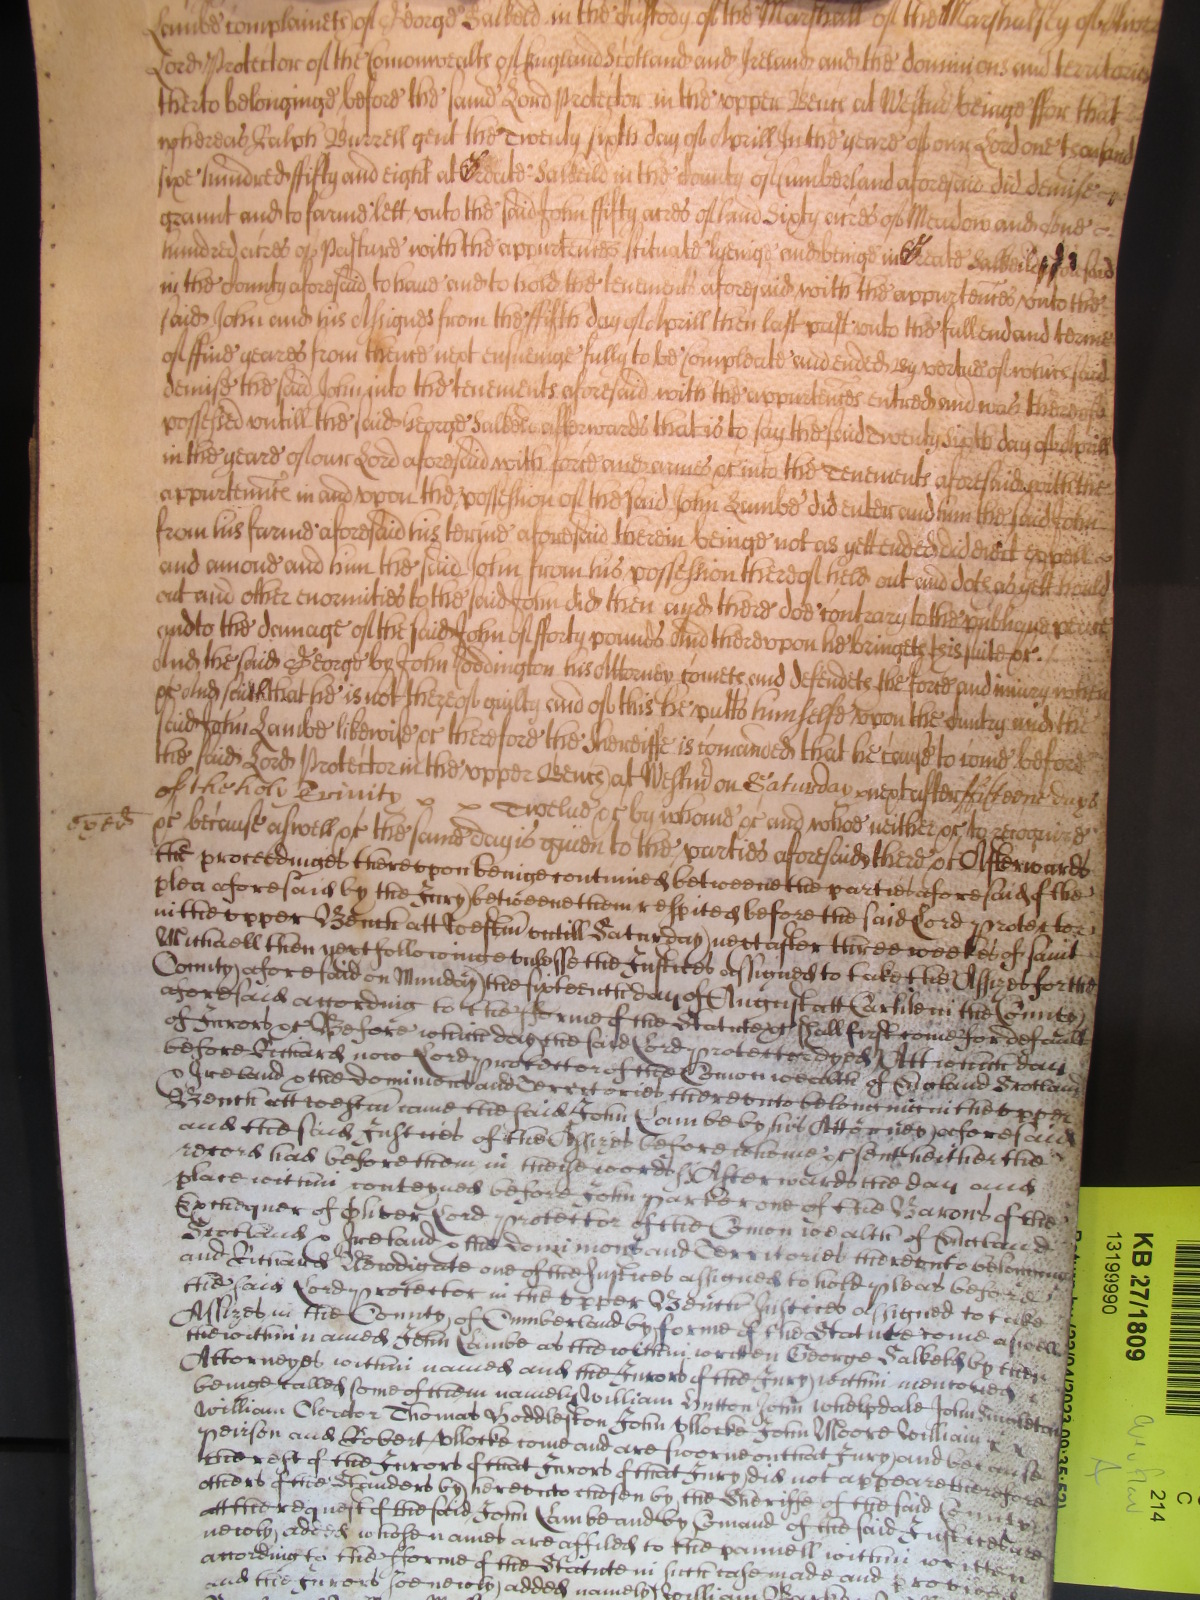 Lambe complaineth of George Salkeld in the Custody of the Marshall of the Marshalsey of
Lord Protector of the Comonwealth of England Scotland and Ireland and the dominions and territories
therto belonginge before the said Lord Protector in the upper Bench at Westmr beinge ffor that
whereas Ralph Burrell gent the Twenty sixth day of Aprill In the yeare of our Lord one thousand
sixe hundred ffifty and eight at Greate Salkeild in the County of Cumberland aforesaid did demise
graunt and to farme lett unto the said John ffifty acres of land Sixty acres of Meadow and One
hundred acres of Pasture with the appurtences scituate lyeinge and beinge in Greate Salkeild aforesaid
in the County aforesaid to have and to hold the tenements aforesaid with the appurtences unto the
said John and his Assignes from the ffifth day of Aprill then last past unto the full end and terme
of ffive yeares from thence next ensueinge fully to be compleate and ended By vertue of which said
demise the said John into the tenements aforesaid with the appurtences entred and was thereof
possessed untill the said George Salkeld afterwards that is to say the said Twenty Sixth day of Aprill
in the yeare of our Lord aforesaid with force and armes &c into the Tenements aforesaid with the
appurtennce in and upon the possession of the said John Lambe did enter and him the said John
from his farme aforesaid his terme aforesaid therein beinge not as yett ended did eiect expell
and amove and him the said John from his possession thereof held out and doth as yett hould
out and other enormities to the said John did then and there doe contrary to the publique peace
and to the damage of the said John of fforty pounds And thereupon he bringeth this suite &c.
And the said George by John Coddington his Attorney cometh and defendeth the force and iniury when
&c And saith that he is not thereof guilty and of this he putts himselfe upon the Cuntry and the
said John Lambe likewise &c therefore the Sheriffe is comanded that he cause to come before
the said Lord Protector in the upper Bench at Westmr on Saturday next after fifteene days
of the holy Trinity x x Twelve &c by whome &c and whoe neither &c to recognize
&c because aswell &c the same day is given to the parties aforesaid there &c Afterwards
the proceedinges thereupon beinge continued betweene the parties aforesaid of the
plea aforesaid by the Jury betweene them respited before the said Lord Protector
in the upper Bench att Westmr untill Saturday next after three weekes of saint
Michaell then next followinge unlesse the Justices assigned to take the Assizes for the
County aforesaid on Munday the sixteenth day of August att Carlile in the County
aforesaid according to the fforme of the Statute &c shall first come for default
of Jurors &c Before which day the said Lord Protector dyed Att which day
before Richard now Lord Protector of the Comonwealth of England Scotland
& Ireland & the dominions and Territories thereunto belonging in the upper
Bench att Westmr came the said John Lambe by his Attorney aforesaid
and the said Justices of the Assizes before whome &c sent hither the
record had before them in theise words Afterwards the day and
place within conteyned before John Parker one of the Barons of the
Exchequer of Oliver Lord Protector of the Comonwealth of England
Scotland & Ireland & the dominions and Territories thereunto belonging
and Richard Newdigate one of the Justices assigned to hold pleas before
the said Lord Protector in the upper Bench Justices assigned to take
Assizes in the County of Cumberland by forme of the Statute come aswell
the within named John Lambe as the within written George Salkeld by their
Attorneyes within named and the Jurors of the Jury within mentoned
beinge called some of them namely William Hutton John Whelpdale John
William Clerdor Thomas Hoddleston John John Moore William
Peirson and Robert come and are sworne on that Jury and because
the rest of the Jurors of that Jurors of that Jury did not appeare therefore
others of the Standers by hereunto chosen by the Sheriffe of the said County
att the request of the said John Lambe and by Comand of the said Justices are
newly added whose names are affiled to the pannell within written
according to the fforme of the Statute in such case made and provided
and the Jurors soe newly added namely William
KB 27/1809
13199990
214
C